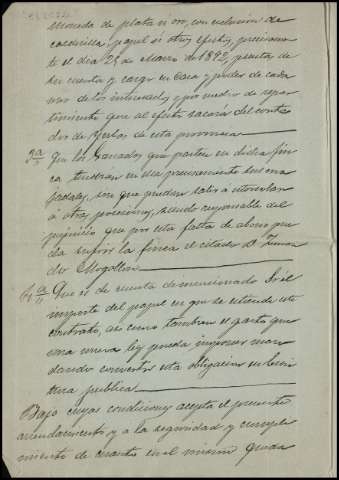 moneda de plata ú oro, con exclusion de
calderilla, papel ú otros efectos, precisamen
te el dia 25 de Marzo de 1892, puesta de
su cuenta y cargo en casa y poder de cada
uno de los interesados y por medio de repar
timiento que al efecto sacará del conta
dor de Yerbas de esta provincia
5ª Que los ganados que pasten en dicha fin
ca tendran en ella precisamente sus ma
jadales, sin que puedan salir á estercolar
á otras posesiones, siendo responsable del
perjuicio que por esta falta de abono pue
da sufrir la finca el citado D.
Mogollon
6ª Que es de cuenta del mencionado Sr. el
importe del papel en que se estiende este
contrato, asi como tambien el gasto que
una nueva ley pueda imponer man
dando convertir esta obligacion en Escri
tura publica
Bajo cuyas condiciones acepta el presente
arrendamiento y a la seguridad y cumpli
miento de cuanto en el mismo queda